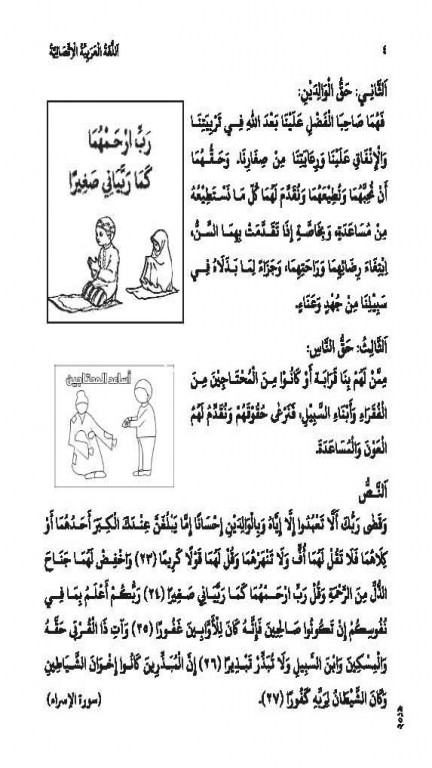 ٤
اَللُّغَةُ الْعَرَبِيَّةُ الْاِتِّصَالِيَّةُ
اَلثَّانِي: حَقُّ الْوَالِدَيْنِ:
فَهُمَا صَاحِبَا الْفَضْلِ عَلَيْنَا بَعْدَ اللهِ فِي تَرْبِيَتِنَا
وَالْإِنْفَاقِ عَلَيْنَا وَرِعَايَتِنَا مِنْ صِغَارِنَا، وَحَقُّهُمَا
أَنْ نُحِبَّهُمَا وَنُطِيعَهُمَا وَنُقَدِّمَ لَهُمَا كُلَّ مَا نَسْتَطِيعُهُ
مِنْ مُسَاعَدَةٍ، وَبِخَاصَّةٍ إِذَا تَقَدَّمَتْ بِهِمَا السِّنُّ،
اِبْتِغَاءَ رِضَائِهِمَا وَرَاحَتِهِمَا، وَجَزَاءً لِمَا بَذَلَاهُ فِي
سَبِيلِنَا مِنْ جُهْدٍ وَعَنَاءٍ.
رَبِّ ارْحَمْهُمَا
كَمَا رَبَّيَانِي صَغِيرًا
اَلثَّالِثُ: حَقُّ النَّاسِ:
مِمَّنْ لَهُمْ بِنَا قَرَابَة أَوْ كَانُوا مِنَ الْمُحْتَاجِيْنَ مِنَ
الْفُقَرَاءِ وَأَبْنَاءِ السَّبِيْلِ، فَنَرْعَى حُقُوْقَهُمْ وَنُقَدِّمُ لَهُمُ
الْعَوْنَ وَالْمُسَاعَدَةَ.
أساعد المحتاجين
اَلنَّصُّ
وَقَضَى رَبُّكَ أَلَّا تَعْبُدُوا إِلَّا إِيَّاهُ وَبِالْوَالِدَيْنِ إِحْسَانًا إِمَّا يَبْلُغَنَّ عِنْدَكَ الْكِبَرَ أَحَدُهُمَا أَوْ
كِلَاهُمَا فَلَا تَقُلْ لَهُمَا أُفٍّ وَلَا تَنْهَرْهُمَا وَقُلْ لَهُمَا قَوْلًا كَرِيمًا (٢٣) وَاخْفِضْ لَهُمَا جَنَاحَ
الذُّلِّ مِنَ الرَّحْمَةِ وَقُلْ رَبِّ ارْحَمْهُمَا كَمَا رَبَّيَانِي صَغِيرًا (٢٤) رَبُّكُمْ أَعْلَمُ بِمَا فِي
نُفُوسِكُمْ إِنْ تَكُونُوا صَالِحِينَ فَإِنَّهُ كَانَ لِلْأَوَّابِينَ غَفُورًا (٢٥) وَآتِ ذَا الْقُرْبَى حَقَّهُ
وَالْمِسْكِينَ وَابْنَ السَّبِيلِ وَلَا تُبَذِّرْ تَبْذِيرًا (٢٦) إِنَّ الْمُبَذِّرِينَ كَانُوا إِخْوَانَ الشَّيَاطِينِ
وَكَانَ الشَّيْطَانُ لِرَبِّهِ كَفُورًا (٢٧).
(سورة الإسراء)